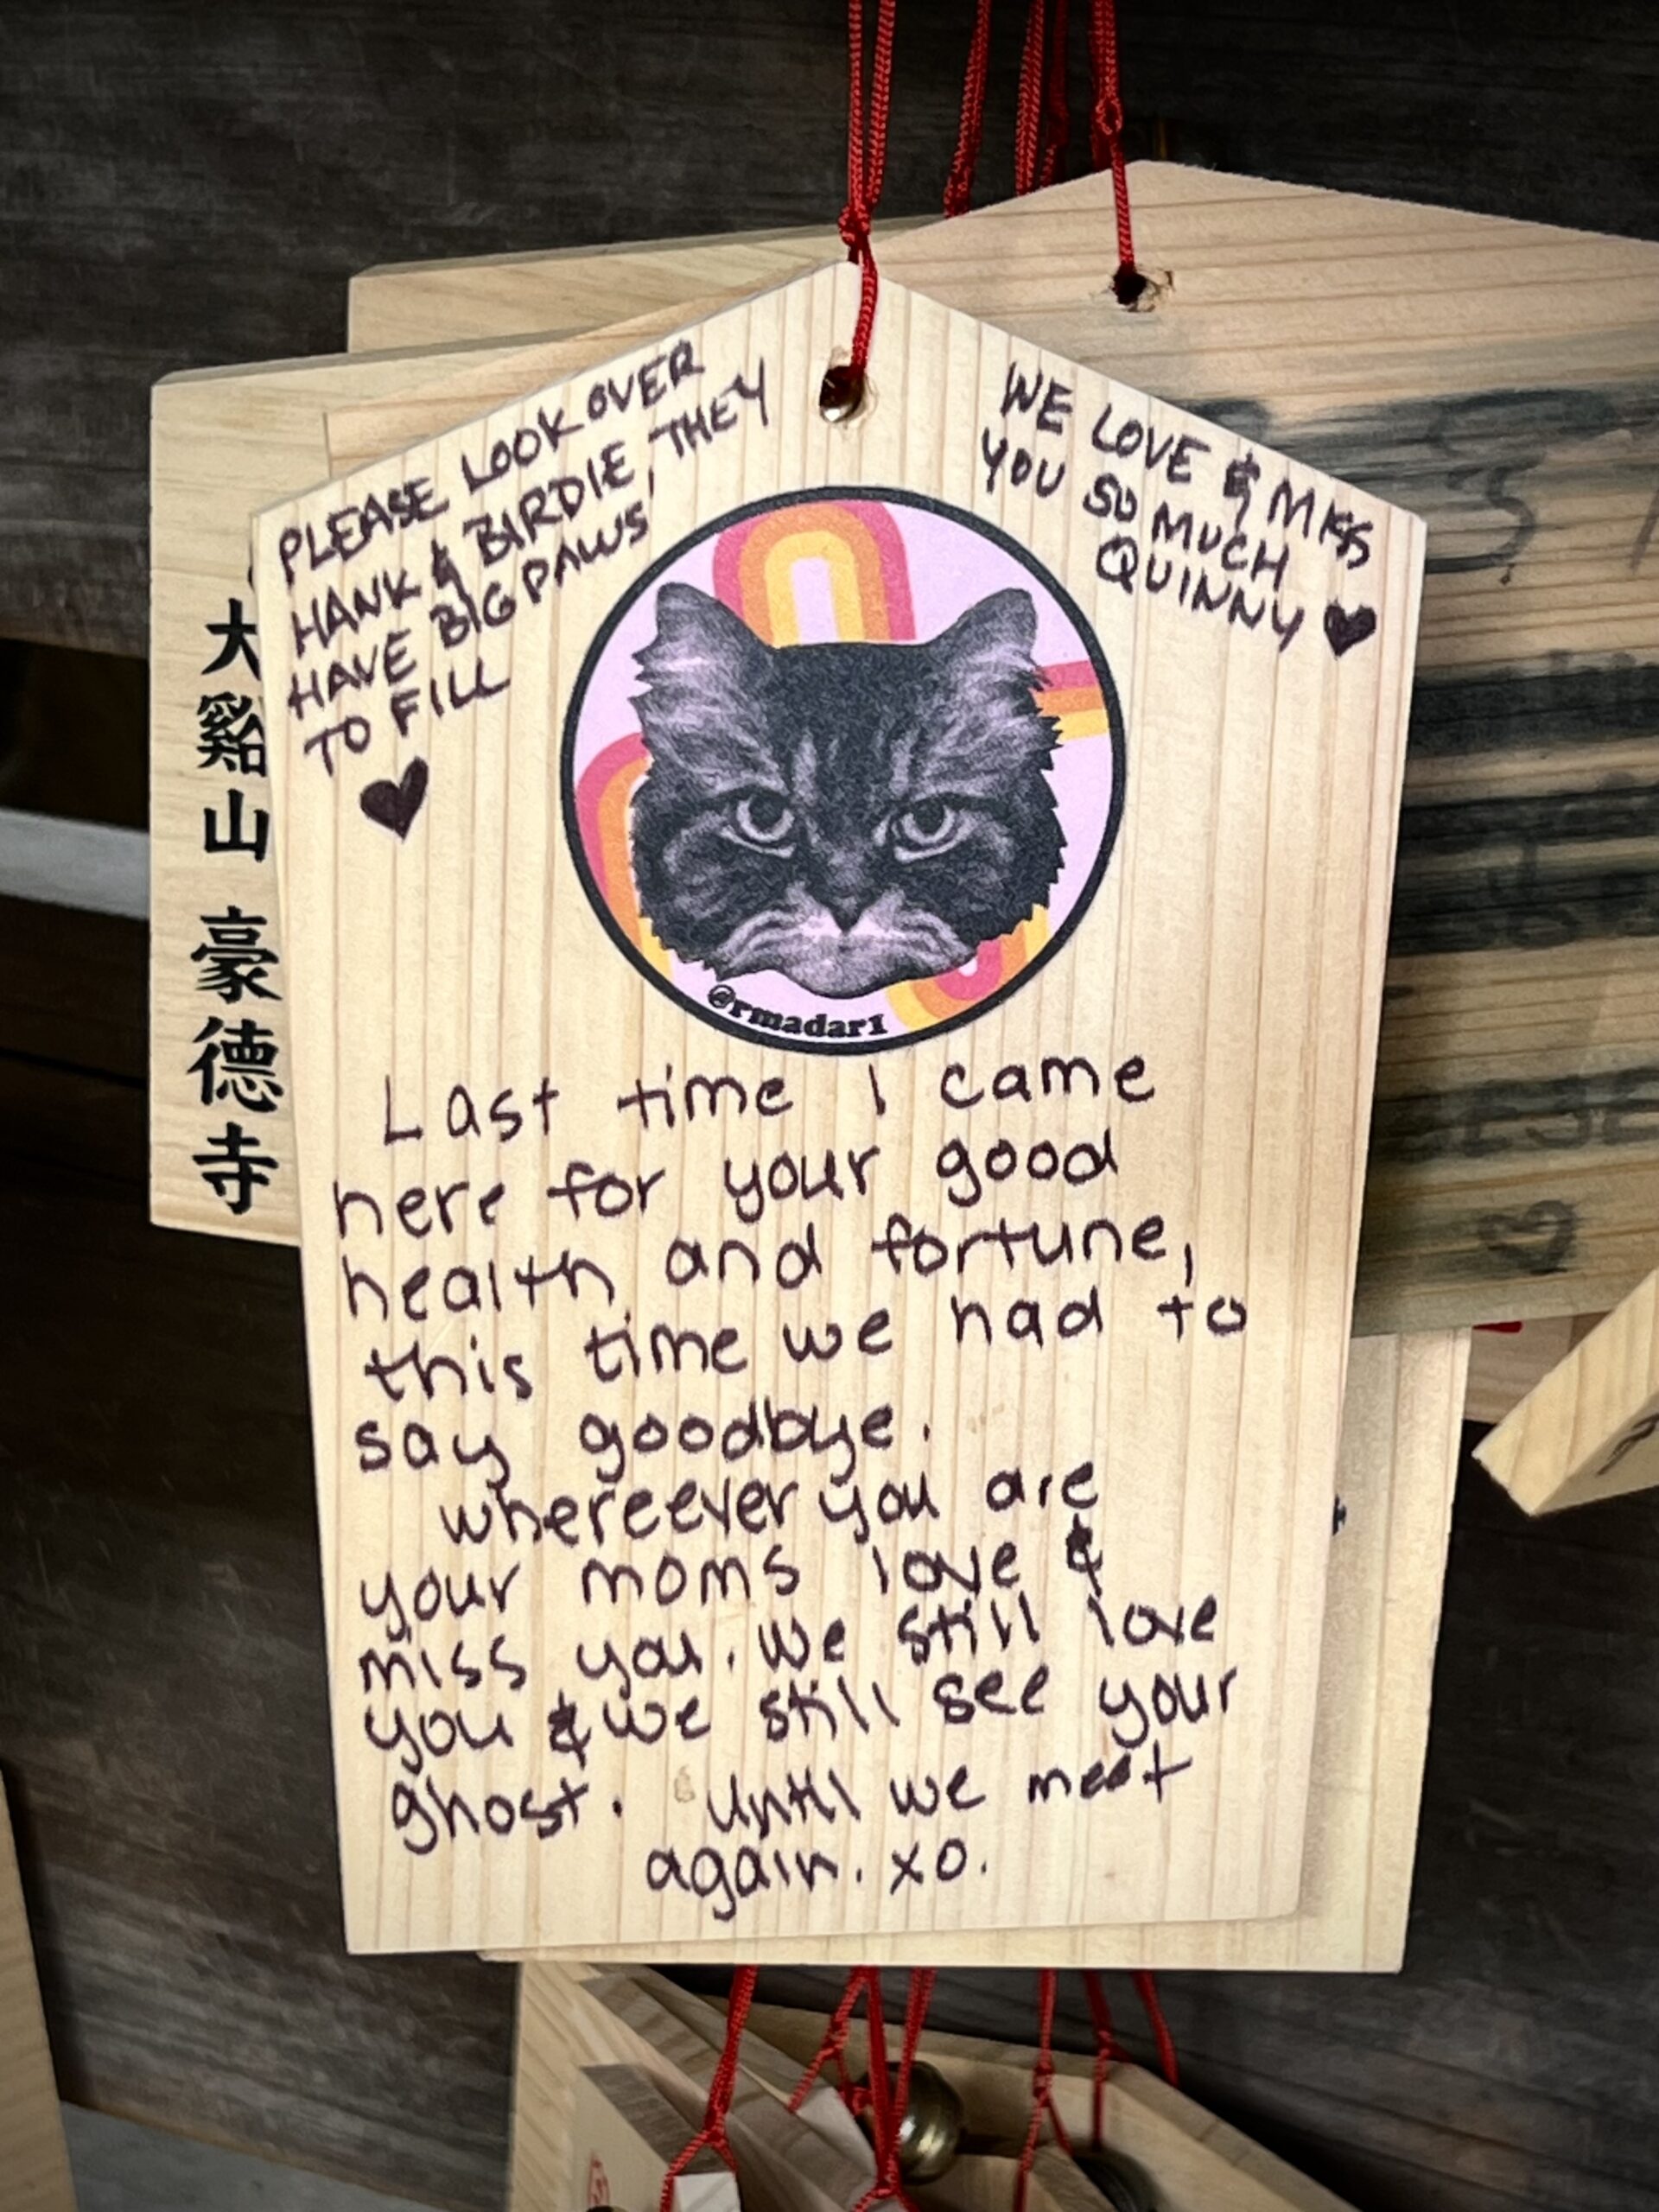 PLEASE LOOK OVER
HANK & BIRDIE, THEY
HAVE BIG PAWS
TO FILL
WE LOVE & MISS
YOU SO MUCH
QUINNY
@rmadar1
Last time I came
here for your good
health and fortune,
this time we had to
say goodbye.
whereever you are
your moms love &
miss you. we still love
you & we still see your
ghost. until we meet
again. xo.
大谿山 豪德寺